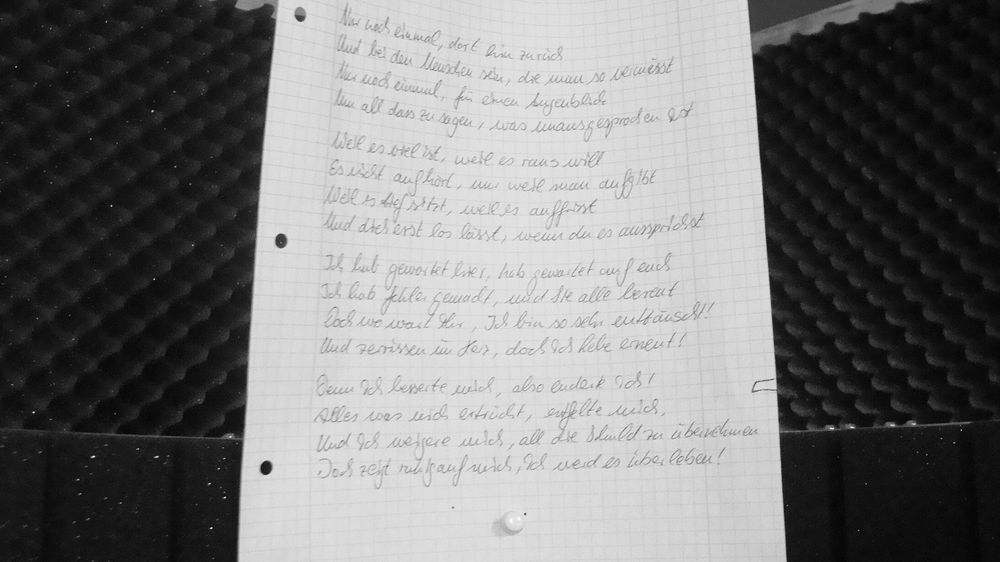 Nur noch einmal, dort hin zurück
Und bei den Menschen sein, die man so vermisst
Nur noch einmal, für einen Augenblick
Um all dass zu sagen, was unausgesprochen ist
Weil es viel ist, weil es raus will
Es nicht aufhört, nur weil man aufgibt
Weil es tief sitzt, weil es auffrisst
Und dich erst los lässt, wenn du es aussprichst
Ich hab gewartet hier, hab gewartet auf euch
Ich hab Fehler gemacht, und Sie alle bereut
Doch wo wart Ihr, Ich bin so sehr enttäuscht!
Und zerrissen im Herz, doch Ich lebe erneut!
Denn Ich besserte mich, also änderte Ich!
Alles was mich erdrückt, mich,
Und Ich weigere mich, all die Schuld zu übernehmen
Doch zeigt ruhig auf mich, Ich werd es überleben!